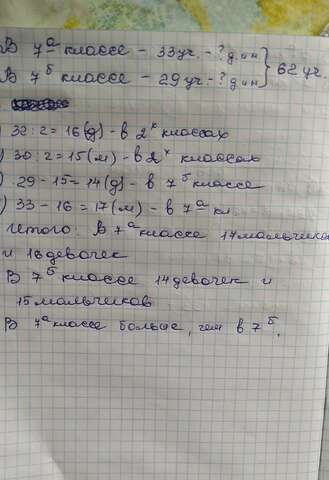 В 7а классе - 33 уч. - ? д и м } 62 уч.
В 7б классе - 29 уч - ? д и м
) 32 : 2 = 16 (д) - в 2х классах
) 30 : 2 = 15 (м) - в 2х классах
) 29 - 15 = 14 (д) - в 7б классе
) 33 - 16 = 17 (м) - в 7а кл
Итого: В 7а классе 17 мальчиков
и 16 девочек
В 7б классе 14 девочек и
15 мальчиков
В 7а классе больше, чем в 7б.